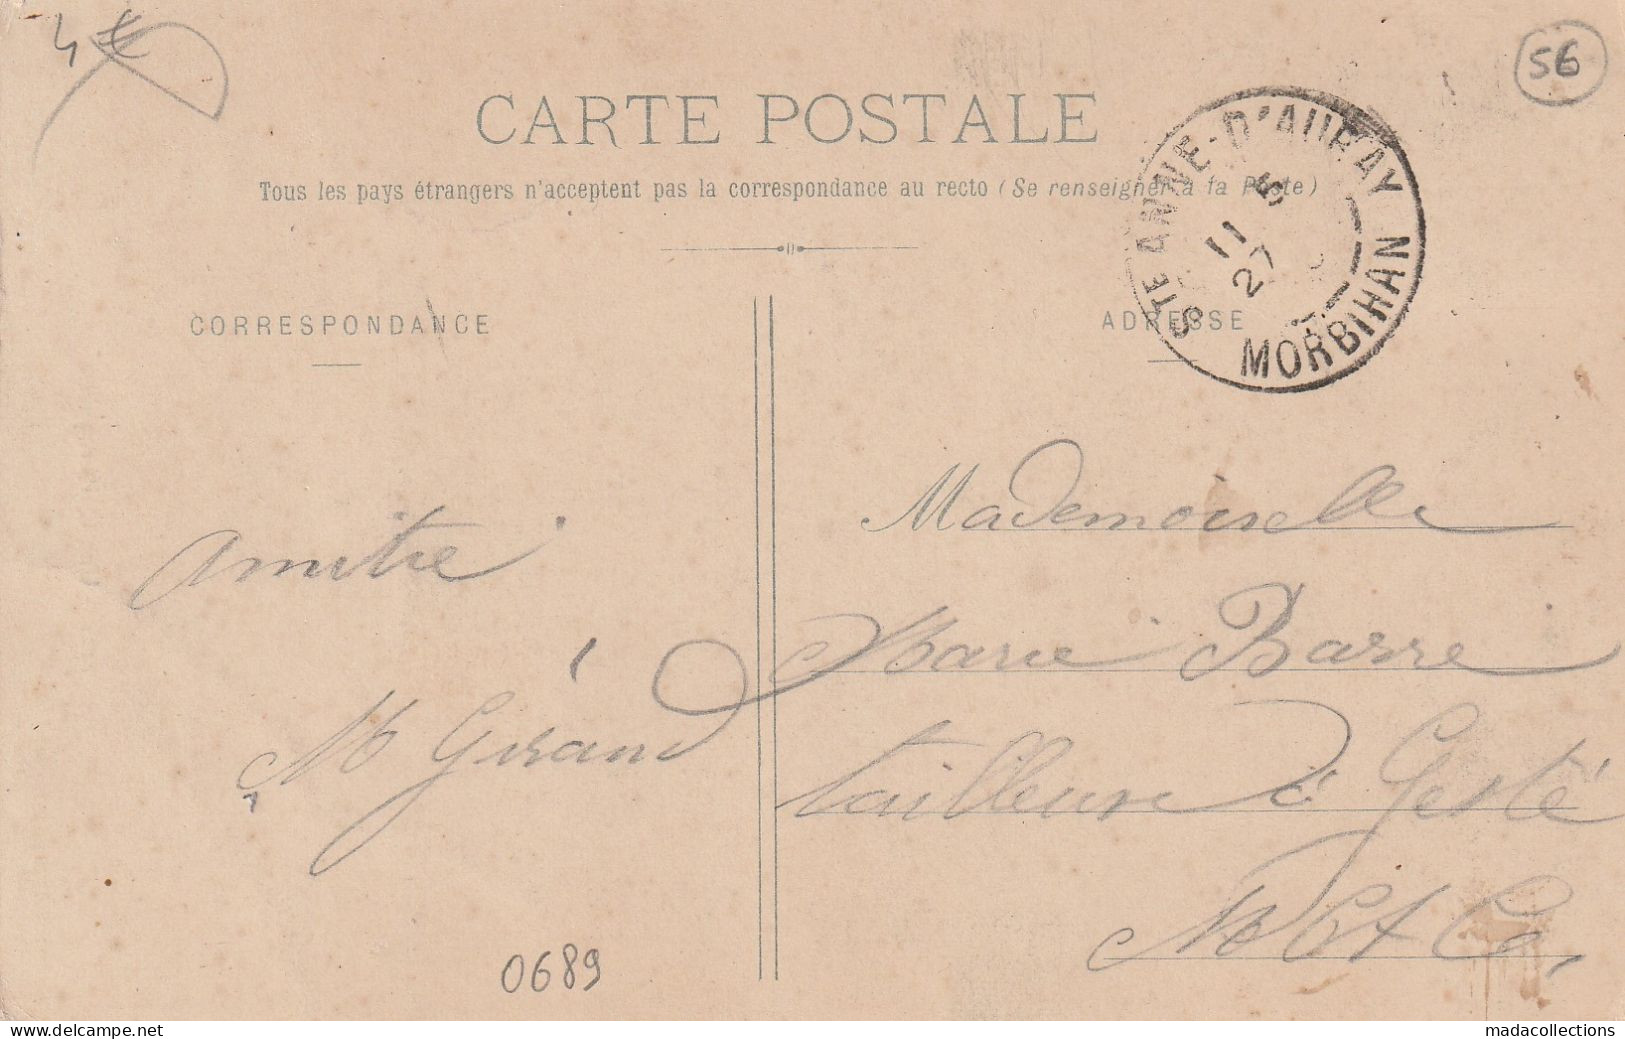 4 €
56
CARTE POSTALE
Tous les pays étrangers n'acceptent pas la correspondance au recto (Se renseigner à la Poste)
STE ANNE-D'AURAY
11 5
27
MORBIHAN
CORRESPONDANCE
amitié
M Girand
0689
ADRESSE
Mademoiselle
Marie Barre
tailleuse à Gesté
M et L
madacollections